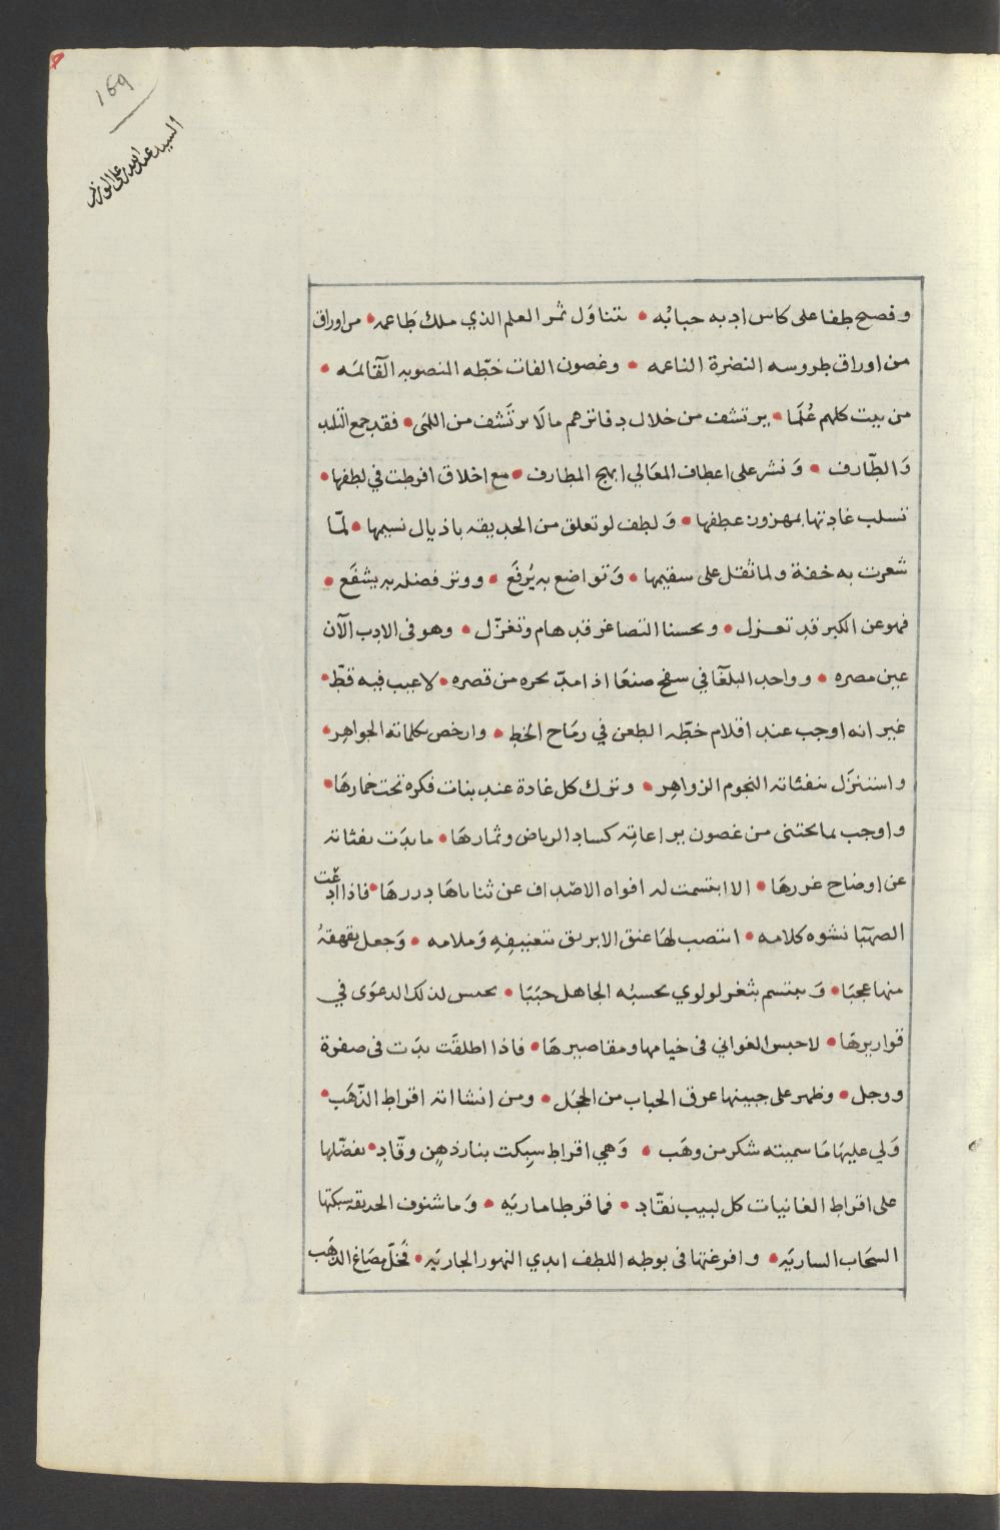 169
السيد عبد الله بن علي الوزير
وفصيح طفا على كاس ادبه حبابُه • يتناوَل ثمر العلم الذي ملك طَاعمه • من اوراق
من اوراق طروسه النضرة الناعمه • وغصون الفات خطّه المنصوبه القآئمَه •
من بيت كلهم عُلَمَا • يرتشف من خلال دفاترهم مالَا يرتَشف من اللمَى • فقد جمع التلد
وَالطّارف • وَنشر على اعطاف المعَالي ابهج المطارف • مع اخلاق افرطت في لطفها •
تسلب غادتها بمهزوز عطفها • وَلطف لو تعلق من الحديقه باذيال نسيمها • لمّا
شعرت به خفة ولما ثقل على سقيمها • وَتواضع به يُرفَع • ووتر فضله به يشفَع •
فهو عن الكبر قد تعزل • وبحسنا التصاغر قد هام وتغزّل • وهو في الادب الآن
عين مصره • وواحد البلغَآ في سفح صنعَا اذ امدّ بحره من قصره • لا عيب فيه قطّ •
غير انه اوجب عند اقلام خطّه الطعن في رمَاح الخُط • وارخص بكلماته الجواهِر •
واستنزَل بنفثاته النجوم الزواهِر • وترك كل غادة عند بنات فكره تحت خمارهَا •
واوجب بما يجتنى من غصون يراعاتِه كساد الرياض وثمارهَا • ما بدَت نفثاته
عن اوضاح غررهَا • الا ابتسمت له افواه الاصْداف عن ثناياهَا دررهَا • فاذا ادّعت
الصهبَا نشوه كلامه • انتصب لهَا عنق الابريق بتعنيفِهِ وَملامه • وَجعل يقهقهُ
منها عجبَا • وَيبتسم بثغر لولوي يحسبُه الجاهل حبَبَا • يحبس لذلك الدعوَى في
قواريرهَا • لا حبس الغواني في خيامها ومقاصيرهَا • فاذا اطلقَت بدَت في صفوة
ووجل • وظهر على جبينها عرق الحباب من الخجَل • ومن انشااته اقراط الذّهَب •
وَلي عليهَا مَا سميته شكر من وهَب • وَهي اقراط سبِكت بنار ذهِن وقّاد • نفضّلها
على اقراط الغانيات كل لبيب نقّاد • فما قرطا ماريَه • وَما شنوف الحديقه سبكتها
السحَاب الساريَه • وافرغتها في بوطه اللطف ايدي النهور الجاريَه • فَخَلّ مصَاغ الذهَب